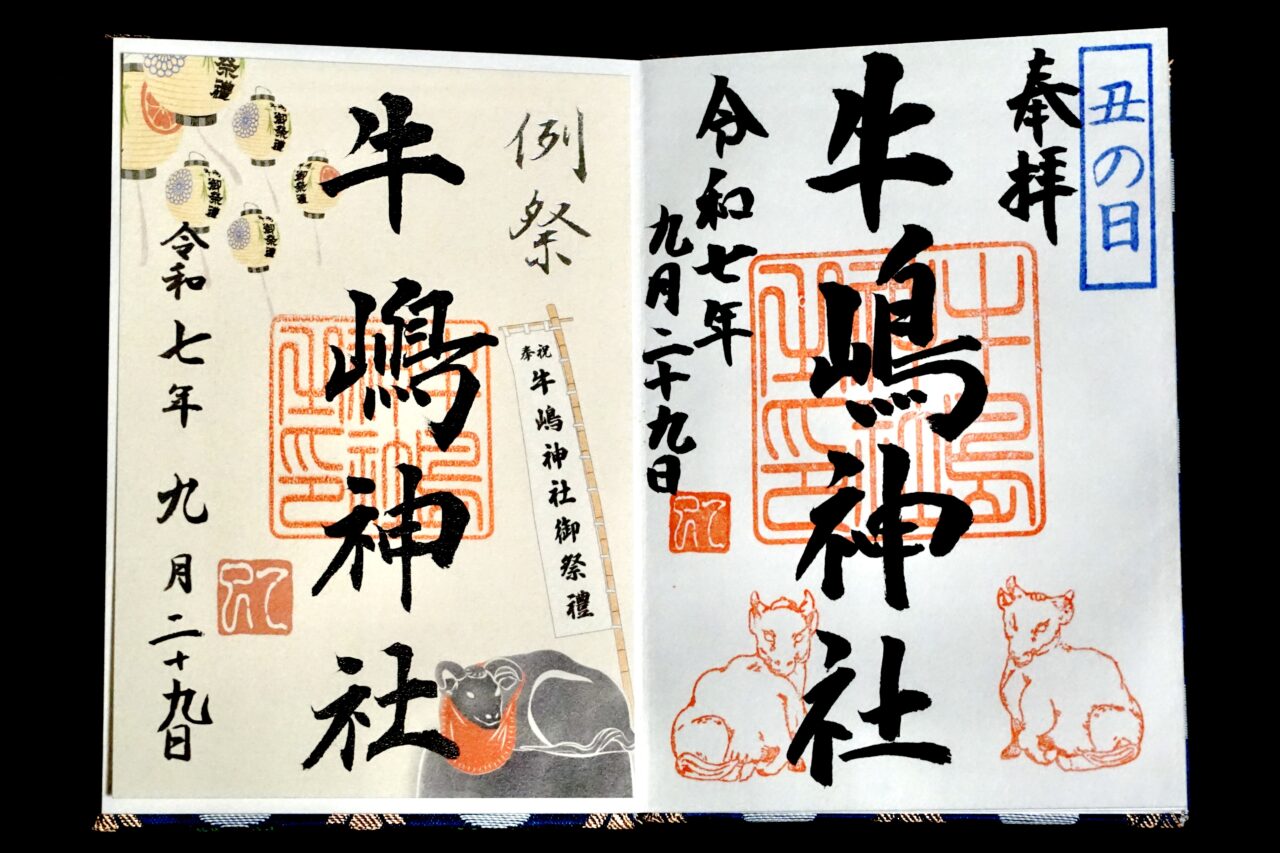 丑の日
奉拝
牛嶋神社
令和七年
九月二十九日
例祭
奉祝
牛嶋神社御祭禮
牛嶋神社
令和七年 九月二十九日
御祭禮
御祭禮
御祭禮
御祭禮
祭禮